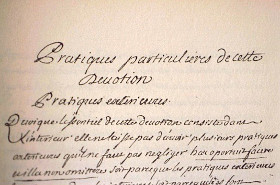 Pratiques particulieres de cette
Devotion
Pratiques exterieures.
Quoique lessentiel de cette devotion consiste dans
l'interieur elle ne laisse pas d'avoir plusieurs pratiques
exterieures qu'il ne faut pas negliger haec oportuit facere
et illa non omittere soit parceque les pratiques exterieures